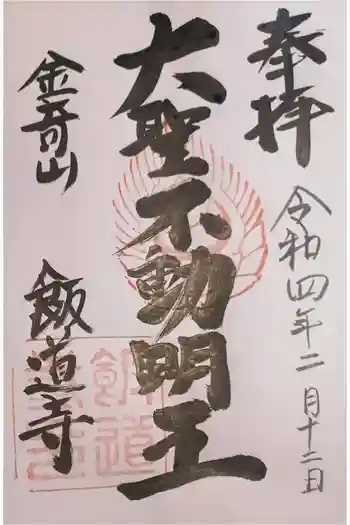 奉拝
令和四年二月十二日
大聖不動明王
金奇山
飯道寺